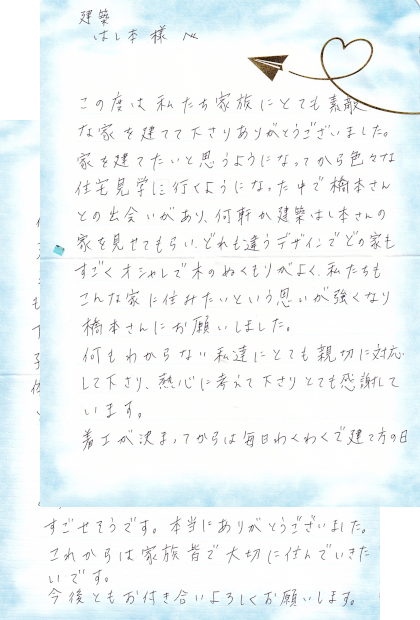 建築
はし本様へ
この度は私たち家族にとても素敵
な家を建てて下さりありがとうございました。
家を建てたいと思うようになってから色々な
住宅見学に行くようになった中で橋本さん
との出会いがあり、何軒か建築はし本さんの
家を見せてもらい、どれも違うデザインでどの家も
すごくオシャレで木のぬくもりがよく、私たちも
こんな家に住みたいという思いが強くなり
橋本さんにお願いしました。
何もわからない私達にとても親切に対応
して下さり、熱心に考えて下さりとても感謝して
います。
着工が決まってからは毎日わくわくで建て方の日
すごせそうです。本当にありがとうございました。
これからは家族皆で大切に住んでいきた
いです。
今後ともお付き合いよろしくお願いします。